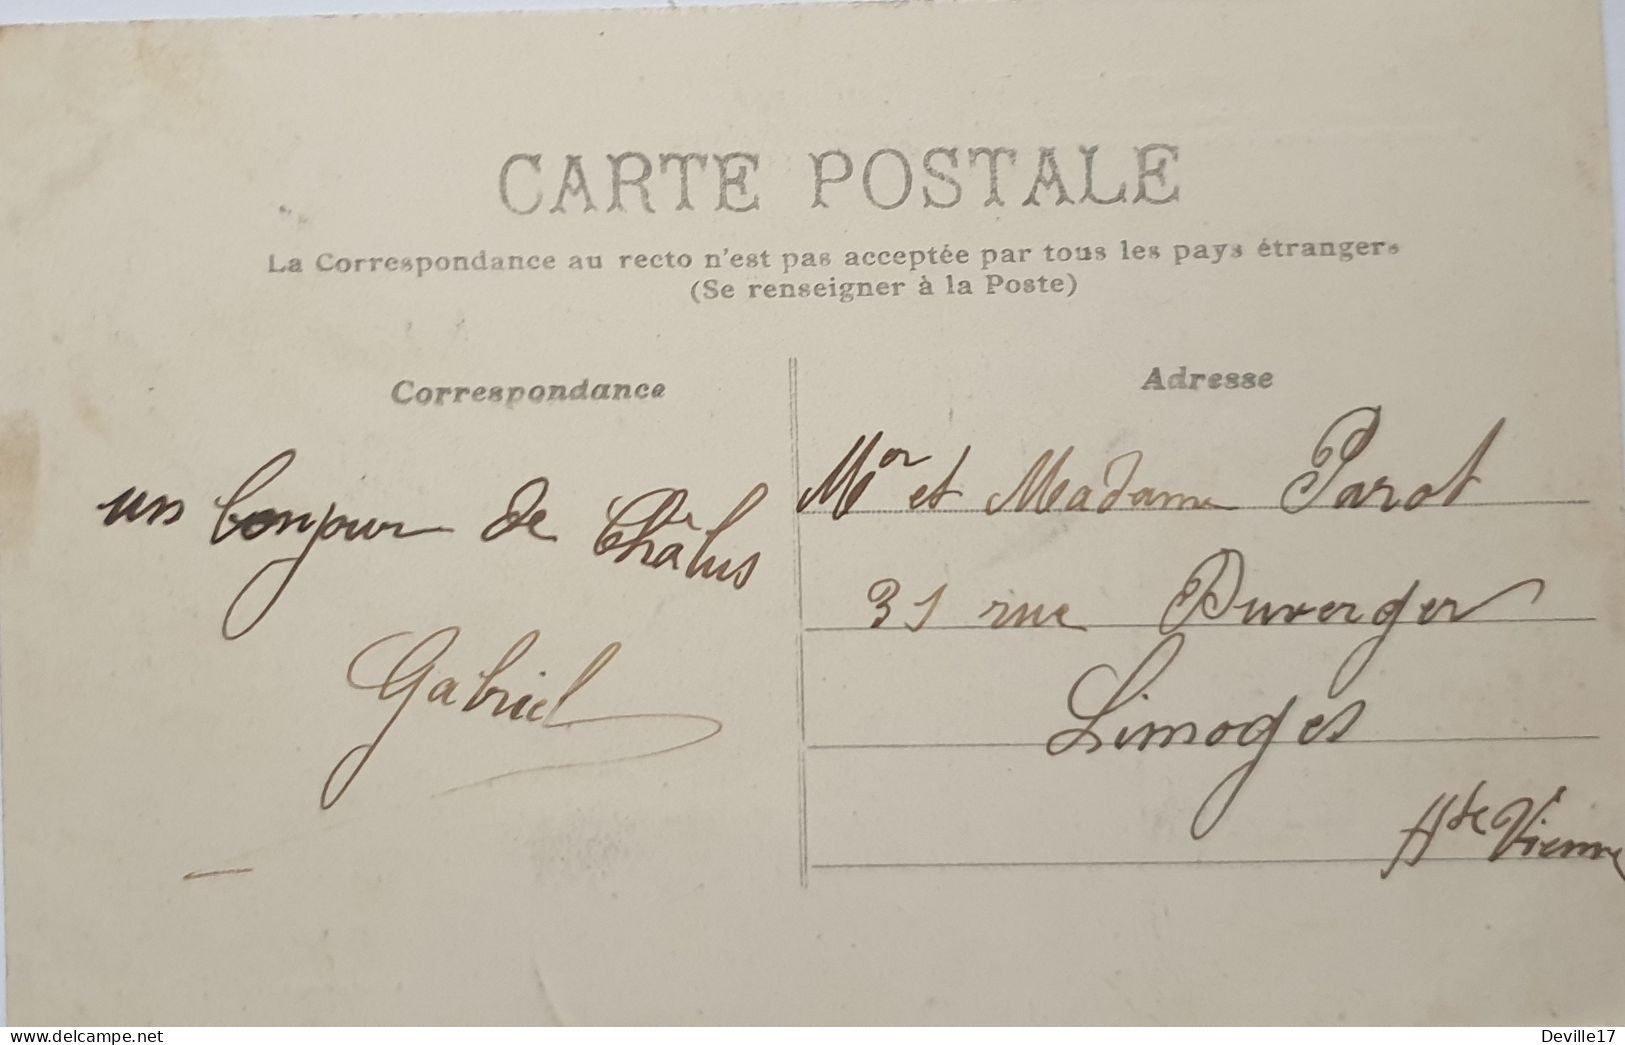 CARTE POSTALE
La Correspondance au recto n'est pas acceptée par tous les pays étrangers
(Se renseigner à la Poste)
Correspondance
un bonjour de Châlus
Gabriel
Adresse
Mor et Madame Parot
31 rue Duverger
Limoges
Hte Vienne
website : www.delcampe.net
Deville17